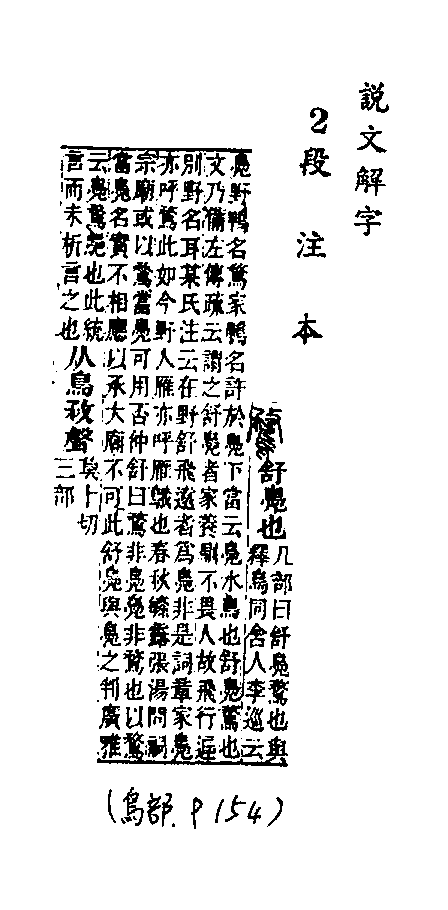 說文解字
2段注本
鶩舒鳧也
几部曰舒鳧鶩也與
釋鳥同舍人李巡云
鳧野鴨名鶩家鴨名許於鳧下當云鳧水鳥也舒鳧鶩也
文乃備左傳疏云謂之舒鳧者家養馴不畏人故飛行遲
別野名耳某氏注云在野舒飛遠者爲鳧非是詞章家鳧
亦呼鶩此如今野人雁亦呼雁鵝也春秋繁露張湯問祠
宗廟或以鶩當鳧可用否仲舒曰鶩非鳧鳧非鶩也以鶩
當鳧名實不相應以承大廟不可此舒鳧與鳧之判廣雅
云鳧鶩也此統
言而未析言之也
从鳥敄聲
莫卜切
三部
(鳥部.P154)